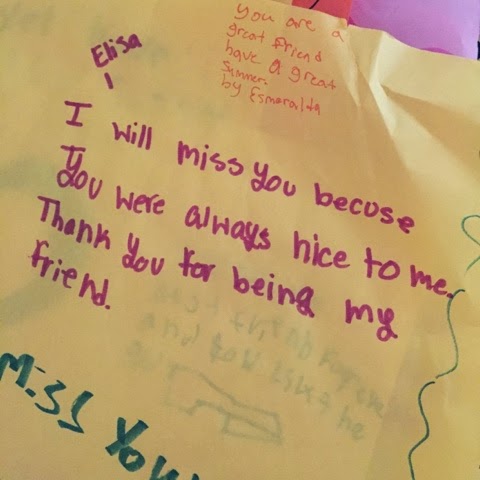 you are a
great friend
have a great
summer.
by Esmeralda
Elisa
I will miss you becuse
You were always nice to me.
Thank you for being my
friend.
Miss You